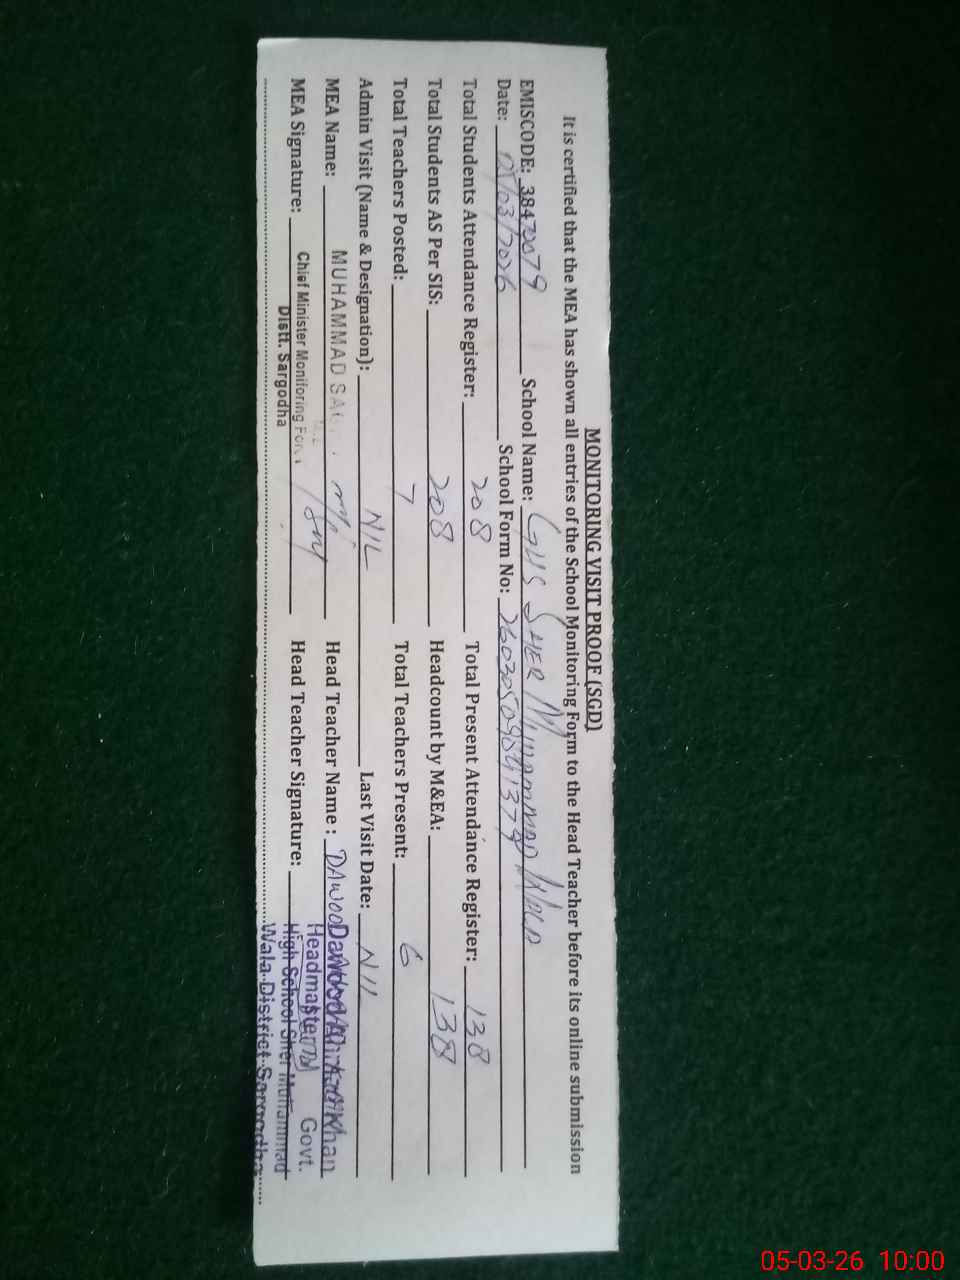 MONITORING VISIT PROOF (SGD)
It is certified that the MEA has shown all entries of the School Monitoring Form to the Head Teacher before its online submission
EMISCODE: 38470079 School Name: GHS SHER MUHAMMAD WALA
Date: 05/03/2026 School Form No:
Total Students Attendance Register: 208 Total Present Attendance Register: 138
Total Students AS Per SIS: 208 Headcount by M&EA: 138
Total Teachers Posted: 7 Total Teachers Present: 6
Admin Visit (Name & Designation): NIL Last Visit Date: NIL
MEA Name: MUHAMMAD Head Teacher Name : DAWOOD
MEA Signature: Chief Minister Monitoring Head Teacher Signature: Headmaster Govt.
Distt. Sargodha High School Sher Muhammad
Wala District Sargodha
05-03-26 10:00